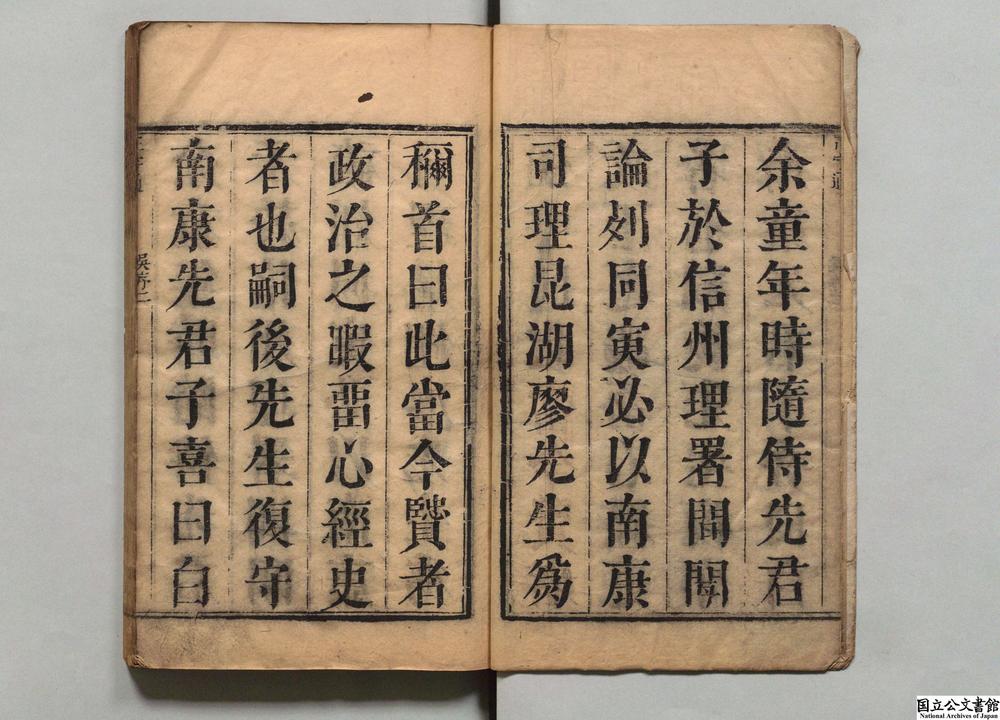 余童年時隨侍先君
子於信州理署間聞
論列同寅必以南康
司理昆湖廖先生爲
稱首曰此當今贒者
政治之暇畱心經史
者也嗣後先生復守
南康先君子喜曰白
国立公文書館
National Archives of Japan